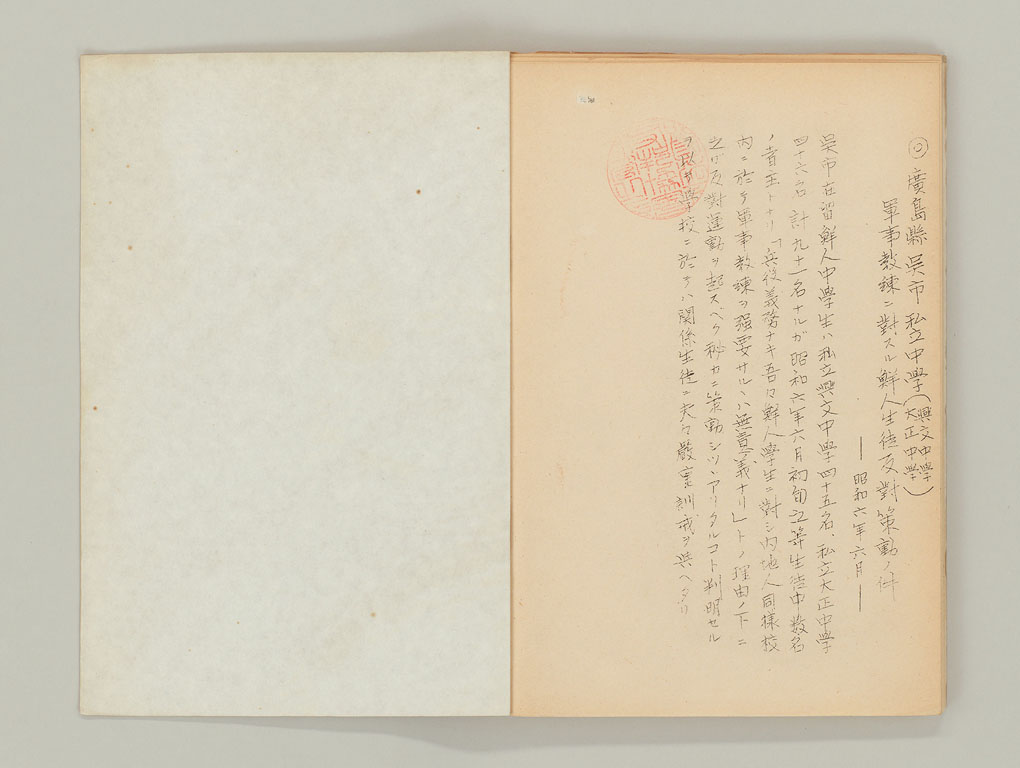 ◎廣島縣呉市私立中學(興文中學 大正中學)
軍事教練ニ對スル鮮人生徒反對策動ノ件
―昭和六年六月―
呉市在留鮮人中學生ハ私立興文中學四十五名、私立大正中學
四十六名 計九十一名ナルガ昭和六年六月初旬之等生徒中数名
ノ者主トナリ「兵役義務ナキ吾々鮮人學生ニ對シ内地人同様校
内ニ於テ軍事教練ヲ强要サルヽハ無意義ナリ」トノ理由ノ下ニ
之ガ反對運動ヲ起スベク秘カニ策動シツヽアリタルコト判明セル
ヲ以テ學校ニ於テハ関係生徒ニ夫々嚴重訓戒ヲ與ヘタリ